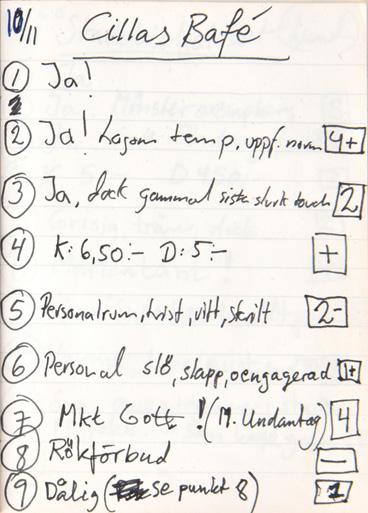 10/11 Cillas Bafé
1 Ja!
2 Ja! Lagom temp, uppf. norm 4+
3 Ja, dock gammal sista slurk 2
4 K: 6,50:- D: 5:- +
5 Personalrum, trist, vitt, sterilt 2-
6 Personal slö, slapp, oengagerad 1+
7 Mkt Gott! (M. Undantag) 4
8 Rökförbud —
9 Dålig (se punkt 8) 1